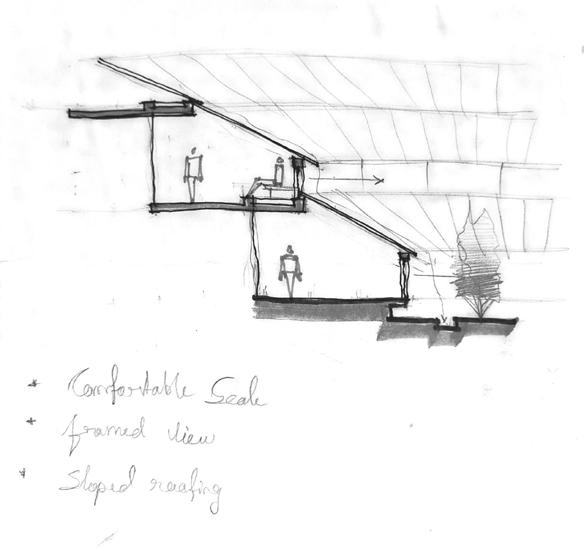 * Comfortable Scale
* framed view
* Sloped roofing